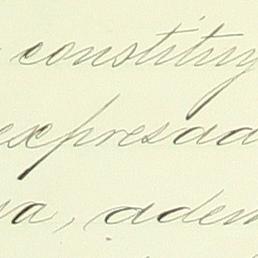 constituy
expresad
a, adem